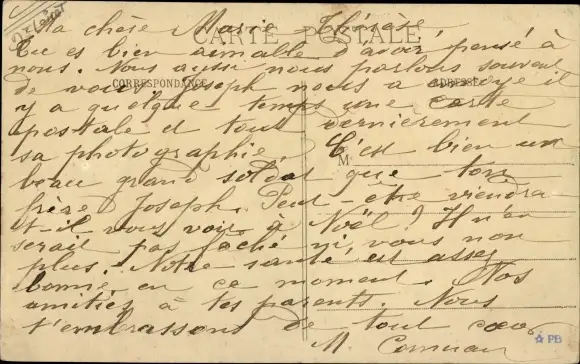 Ma chère Marie-Thérèse,
CARTE POSTALE
Tu es bien aimable d'avoir pensé à
nous. Nous aussi nous parlons souvent
CORRESPONDANCE
ADRESSE
de vous. Joseph nous a envoyé il
y a quelque temps une carte
postale et tout dernièrement
sa photographie. C'est bien un
M
beau grand soldat que ton
frère Joseph. Peut-être viendra
t-il vous voir à Noël? Il n'en
serait pas fâché ni vous non
plus. Notre santé est assez
bonne en ce moment. Nos
amitiés à tes parents. Nous
t'embrassons de tout coeur.
M.
PB